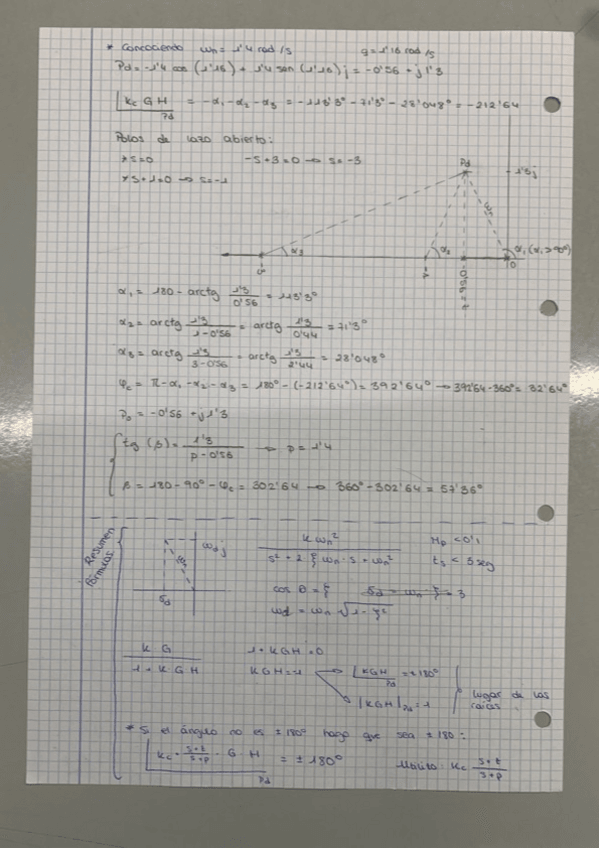 * Conociendo ωn = 1'4 rad/s θ = 1'16 rad/s
Pd = -1'4 cos (1'16) + 1'4 sen (1'16) j = -0'56 + j 1'3
∠ Kc G H |Pd = -α1 - α2 - α3 = -113'3° - 71'3° - 28'048° = -212'64
Polos de lazo abierto:
* s=0 - s+3=0 → s=-3
* s+1=0 → s=-1
Pd
1'3j
ωn
α3 α2 α1 (α1 > 90°)
-3 -1 -0'56 = z 0
α1 = 180 - arctg 1'3 / 0'56 = 113'3°
α2 = arctg 1'3 / 1-0'56 = arctg 1'3 / 0'44 = 71'3°
α3 = arctg 1'3 / 3-0'56 = arctg 1'3 / 2'44 = 28'048°
φc = π - α1 - α2 - α3 = 180° - (-212'64°) = 392'64° → 392'64 - 360° = 32'64°
Pd = -0'56 + j 1'3
tg (β) = 1'3 / p-0'56 → p = 1'4
β = 180 - 90° - φc = 302'64 → 360° - 302'64 = 57'36°
Resumen
fórmulas
ωd j
ωn
δd
K ωn² / s² + 2 ξ ωn · s + ωn²
Mp < 0'1
ts < 3 seg
cos θ = ξ δd = ωn · ξ = 3
ωd = ωn √1 - ξ²
K G / 1 + K G H
1 + K G H = 0
K G H = -1
∠ KGH |Pd = ± 180°
|KGH|Pd = 1
lugar de las
raíces
* Si el ángulo no es ± 180° hago que sea ± 180:
∠ Kc · s+z / s+p · G · H |Pd = ± 180° Kc s+z / s+p